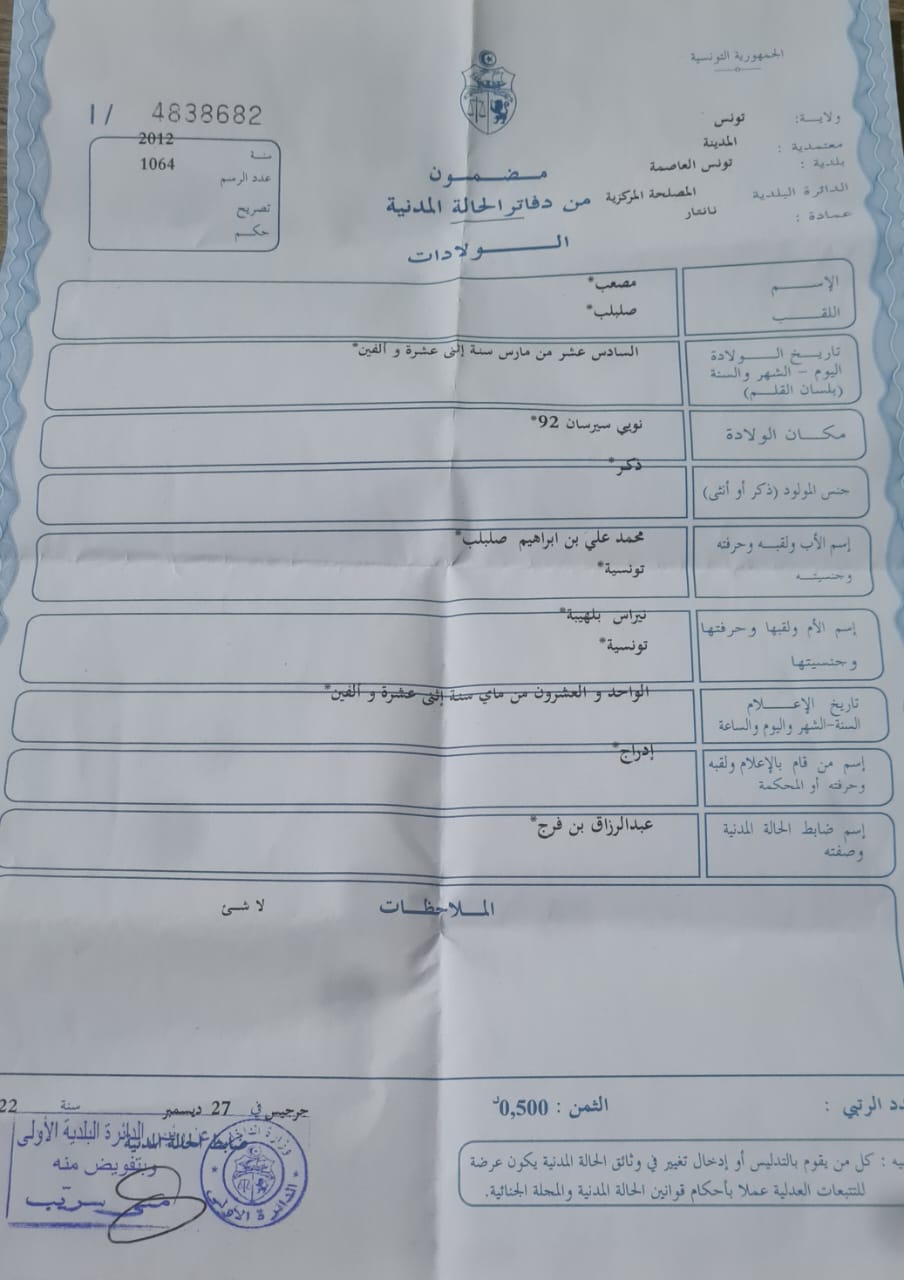 الجمهورية التونسية
ولايــة: تونس
معتمدية : المدينة
بلدية : تونس العاصمة
الدائرة البلدية المصلحة المركزية
عمادة : نانتار
I/ 4838682
سنة 2012
عدد الرسم 1064
تصريح
حكم
مضمون
من دفاتر الحالة المدنية
الولادات
الإسم مصعب*
اللقب صلبلب*
تاريخ الولادة السادس عشر من مارس سنة إثنى عشرة و ألفين*
اليوم - الشهر والسنة
(بلسان القلم)
مكان الولادة نويي سيرسان 92*
جنس المولود (ذكر أو أنثى) ذكر*
إسم الأب ولقبه وحرفته محمد علي بن ابراهيم صلبلب*
وجنسيته تونسية*
إسم الأم ولقبها وحرفتها نيراس بلهيبة*
وجنسيتها تونسية*
تاريخ الإعلام الواحد و العشرون من ماي سنة إثنى عشرة و ألفين*
السنة-الشهر واليوم والساعة
إسم من قام بالإعلام ولقبه إدراج*
وحرفته أو المحكمة
إسم ضابط الحالة المدنية عبدالرزاق بن فرج*
وصفته
الملاحظات لا شئ
الرتبي :
الثمن : 0,500د
جرجيس في 27 ديسمبر سنة 22
ضابط الحالة المدنية
الدائرة البلدية الأولى
وبتفويض منه
الدائرة الأولى
: كل من يقوم بالتدليس أو إدخال تغيير في وثائق الحالة المدنية يكون عرضة
للتتبعات العدلية عملا بأحكام قوانين الحالة المدنية والمجلة الجنائية.